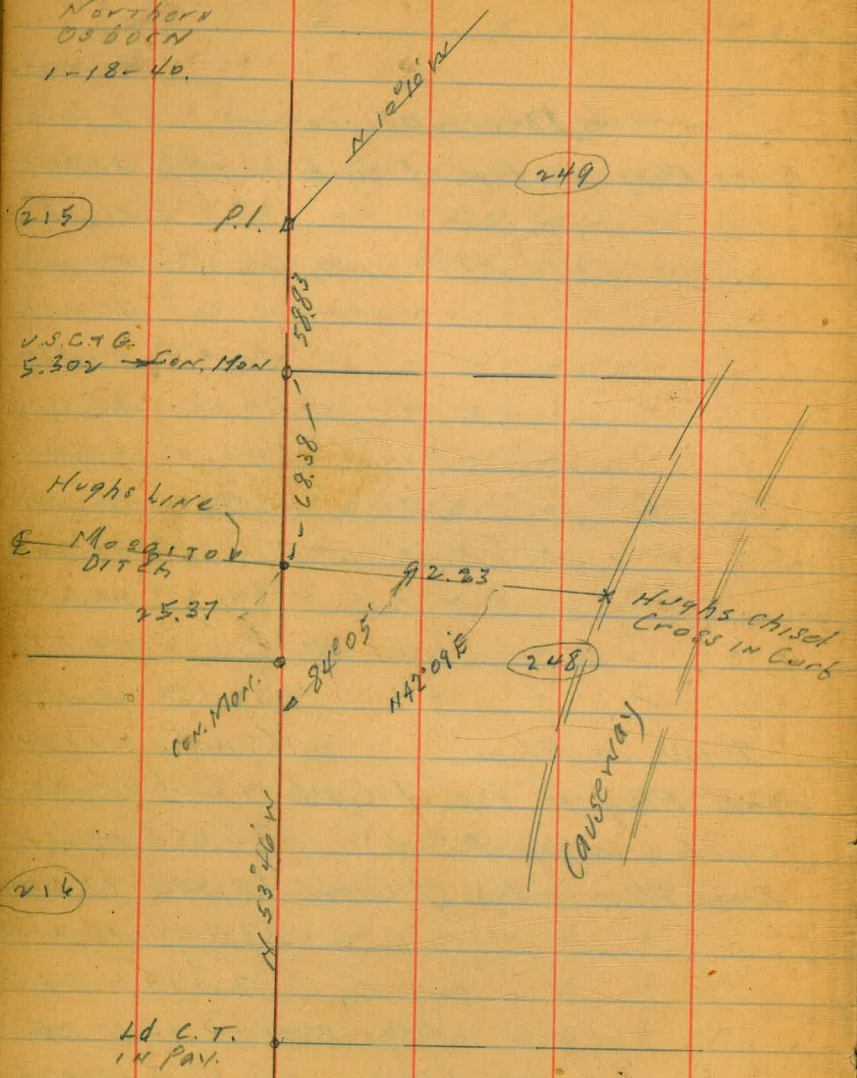 Northern
OSBORN
1-18-40.
N 10°10' W
249
215
P.I.
58.83
U.S.C.+G.
5.302 → CON. MON
68.38
Hughs LINE
℄ MosqITO
DITCH
92.23
25.37
Hughs chisel
Cross IN Curb
84°05'
N42°09'E
248
CON. MON.
Causeway
N 53°46' W
216
Ld C. T.
IN PAV.